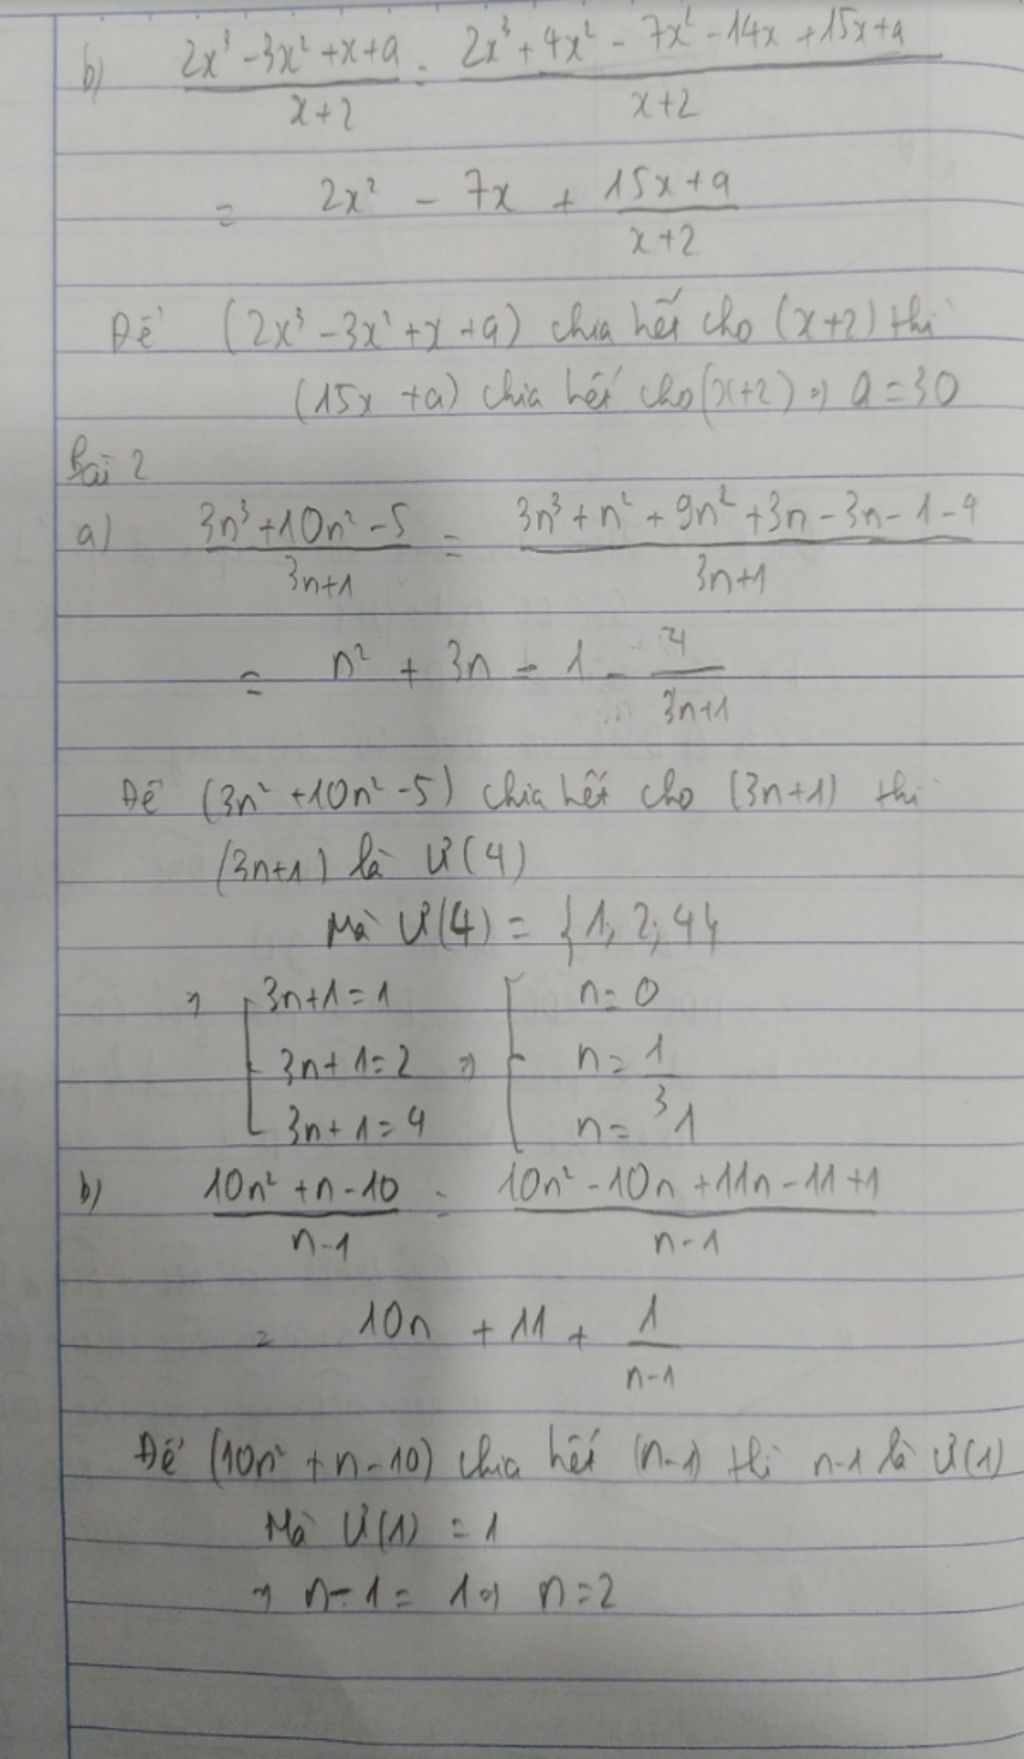 b) (2x³ - 3x² + x + a)/(x+2) = (2x³ + 4x² - 7x² - 14x + 15x + a)/(x+2)
= 2x² - 7x + (15x + a)/(x+2)
Để (2x³ - 3x² + x + a) chia hết cho (x+2) thì
(15x + a) chia hết cho (x+2) ⇒ a = 30
Bài 2
a) (3n³ + 10n² - 5)/(3n+1) = (3n³ + n² + 9n² + 3n - 3n - 1 - 4)/(3n+1)
= n² + 3n - 1 - 4/(3n+1)
Để (3n² + 10n² - 5) chia hết cho (3n+1) thì
(3n+1) là Ư(4)
Mà Ư(4) = {1; 2; 4}
⇒ [ 3n+1 = 1 [ n = 0
3n+1 = 2 ⇒ n = 1/3
3n+1 = 4 n = 1
b) (10n² + n - 10)/(n-1) = (10n² - 10n + 11n - 11 + 1)/(n-1)
= 10n + 11 + 1/(n-1)
Để (10n² + n - 10) chia hết (n-1) thì n-1 là Ư(1)
Mà Ư(1) = 1
⇒ n - 1 = 1 ⇒ n = 2